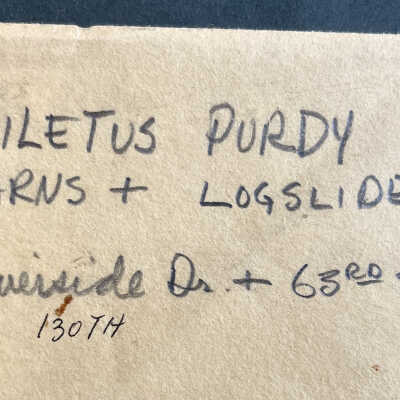 ILETUS PURDY
ARNS + LOGSLIDE
verside Dr. + 63RD
130TH